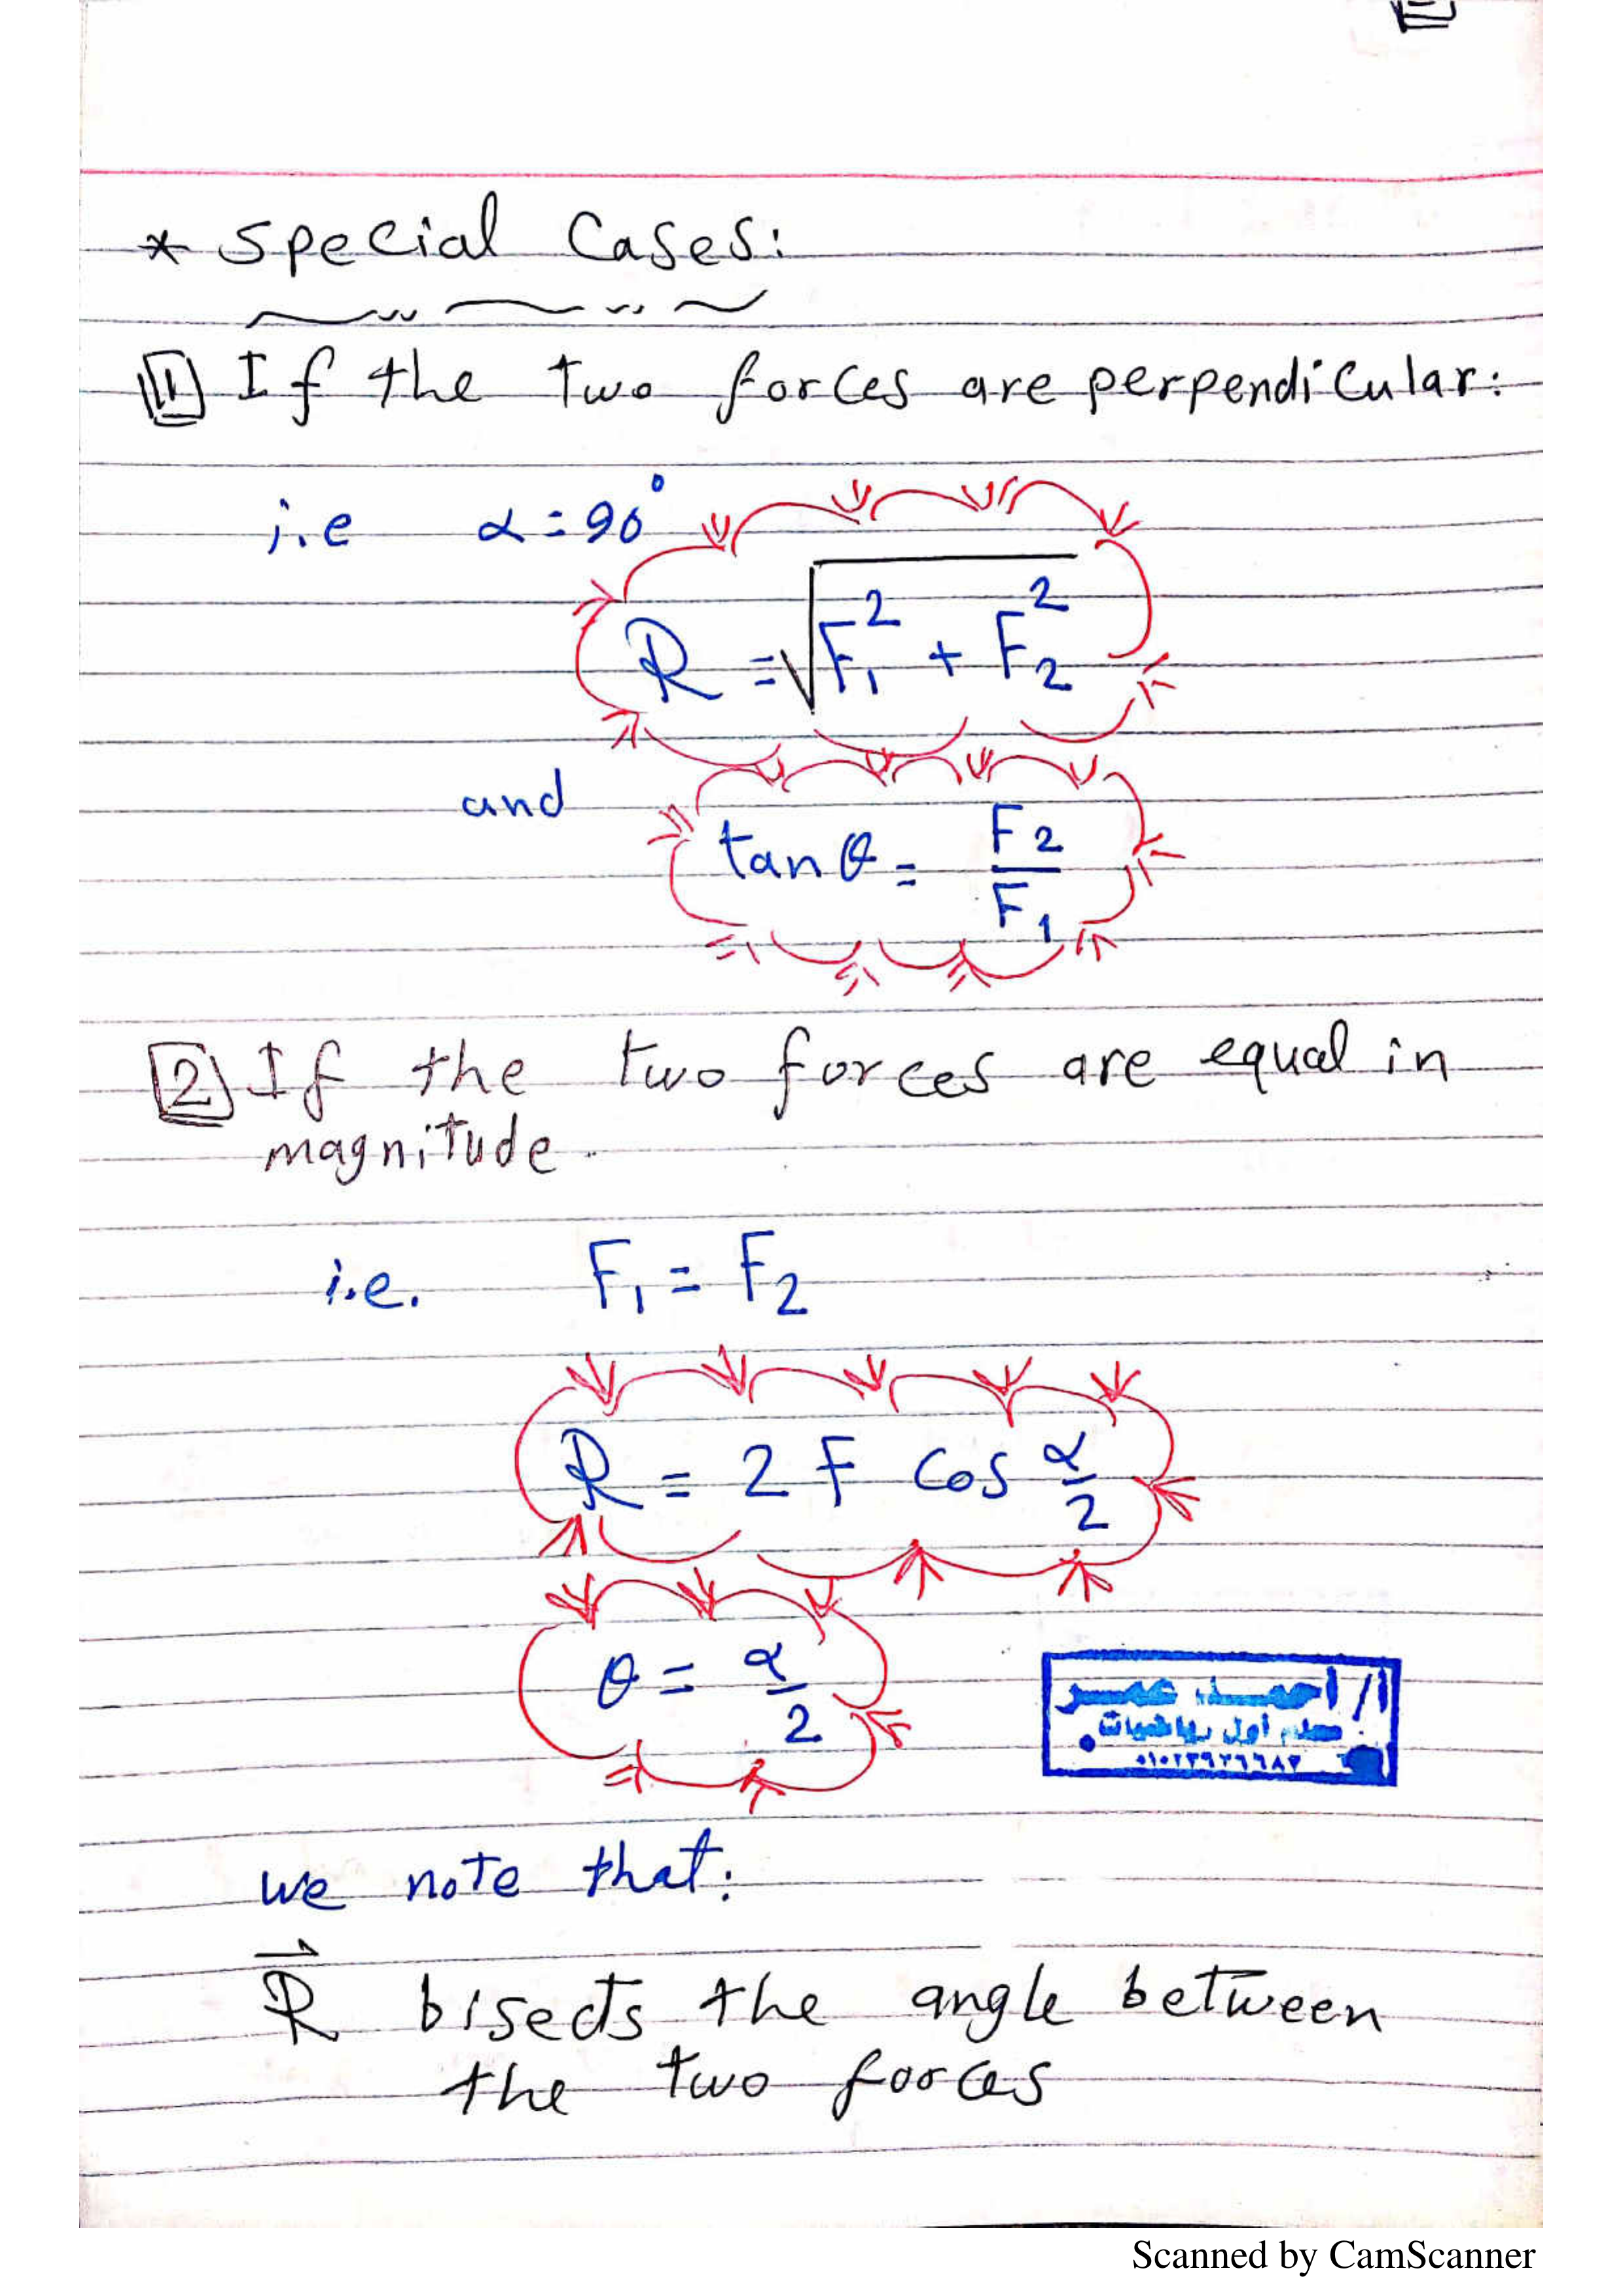 * Special Cases:
1 If the two forces are perpendicular:
i.e α = 90°
R = √F₁² + F₂²
and tan θ = F₂/F₁
2 If the two forces are equal in
magnitude.
i.e. F₁ = F₂
R = 2 F cos α/2
θ = α/2
أ/ احمد عمر
معلم أول رياضيات
we note that:
R⃗ bisects the angle between
the two forces
Scanned by CamScanner